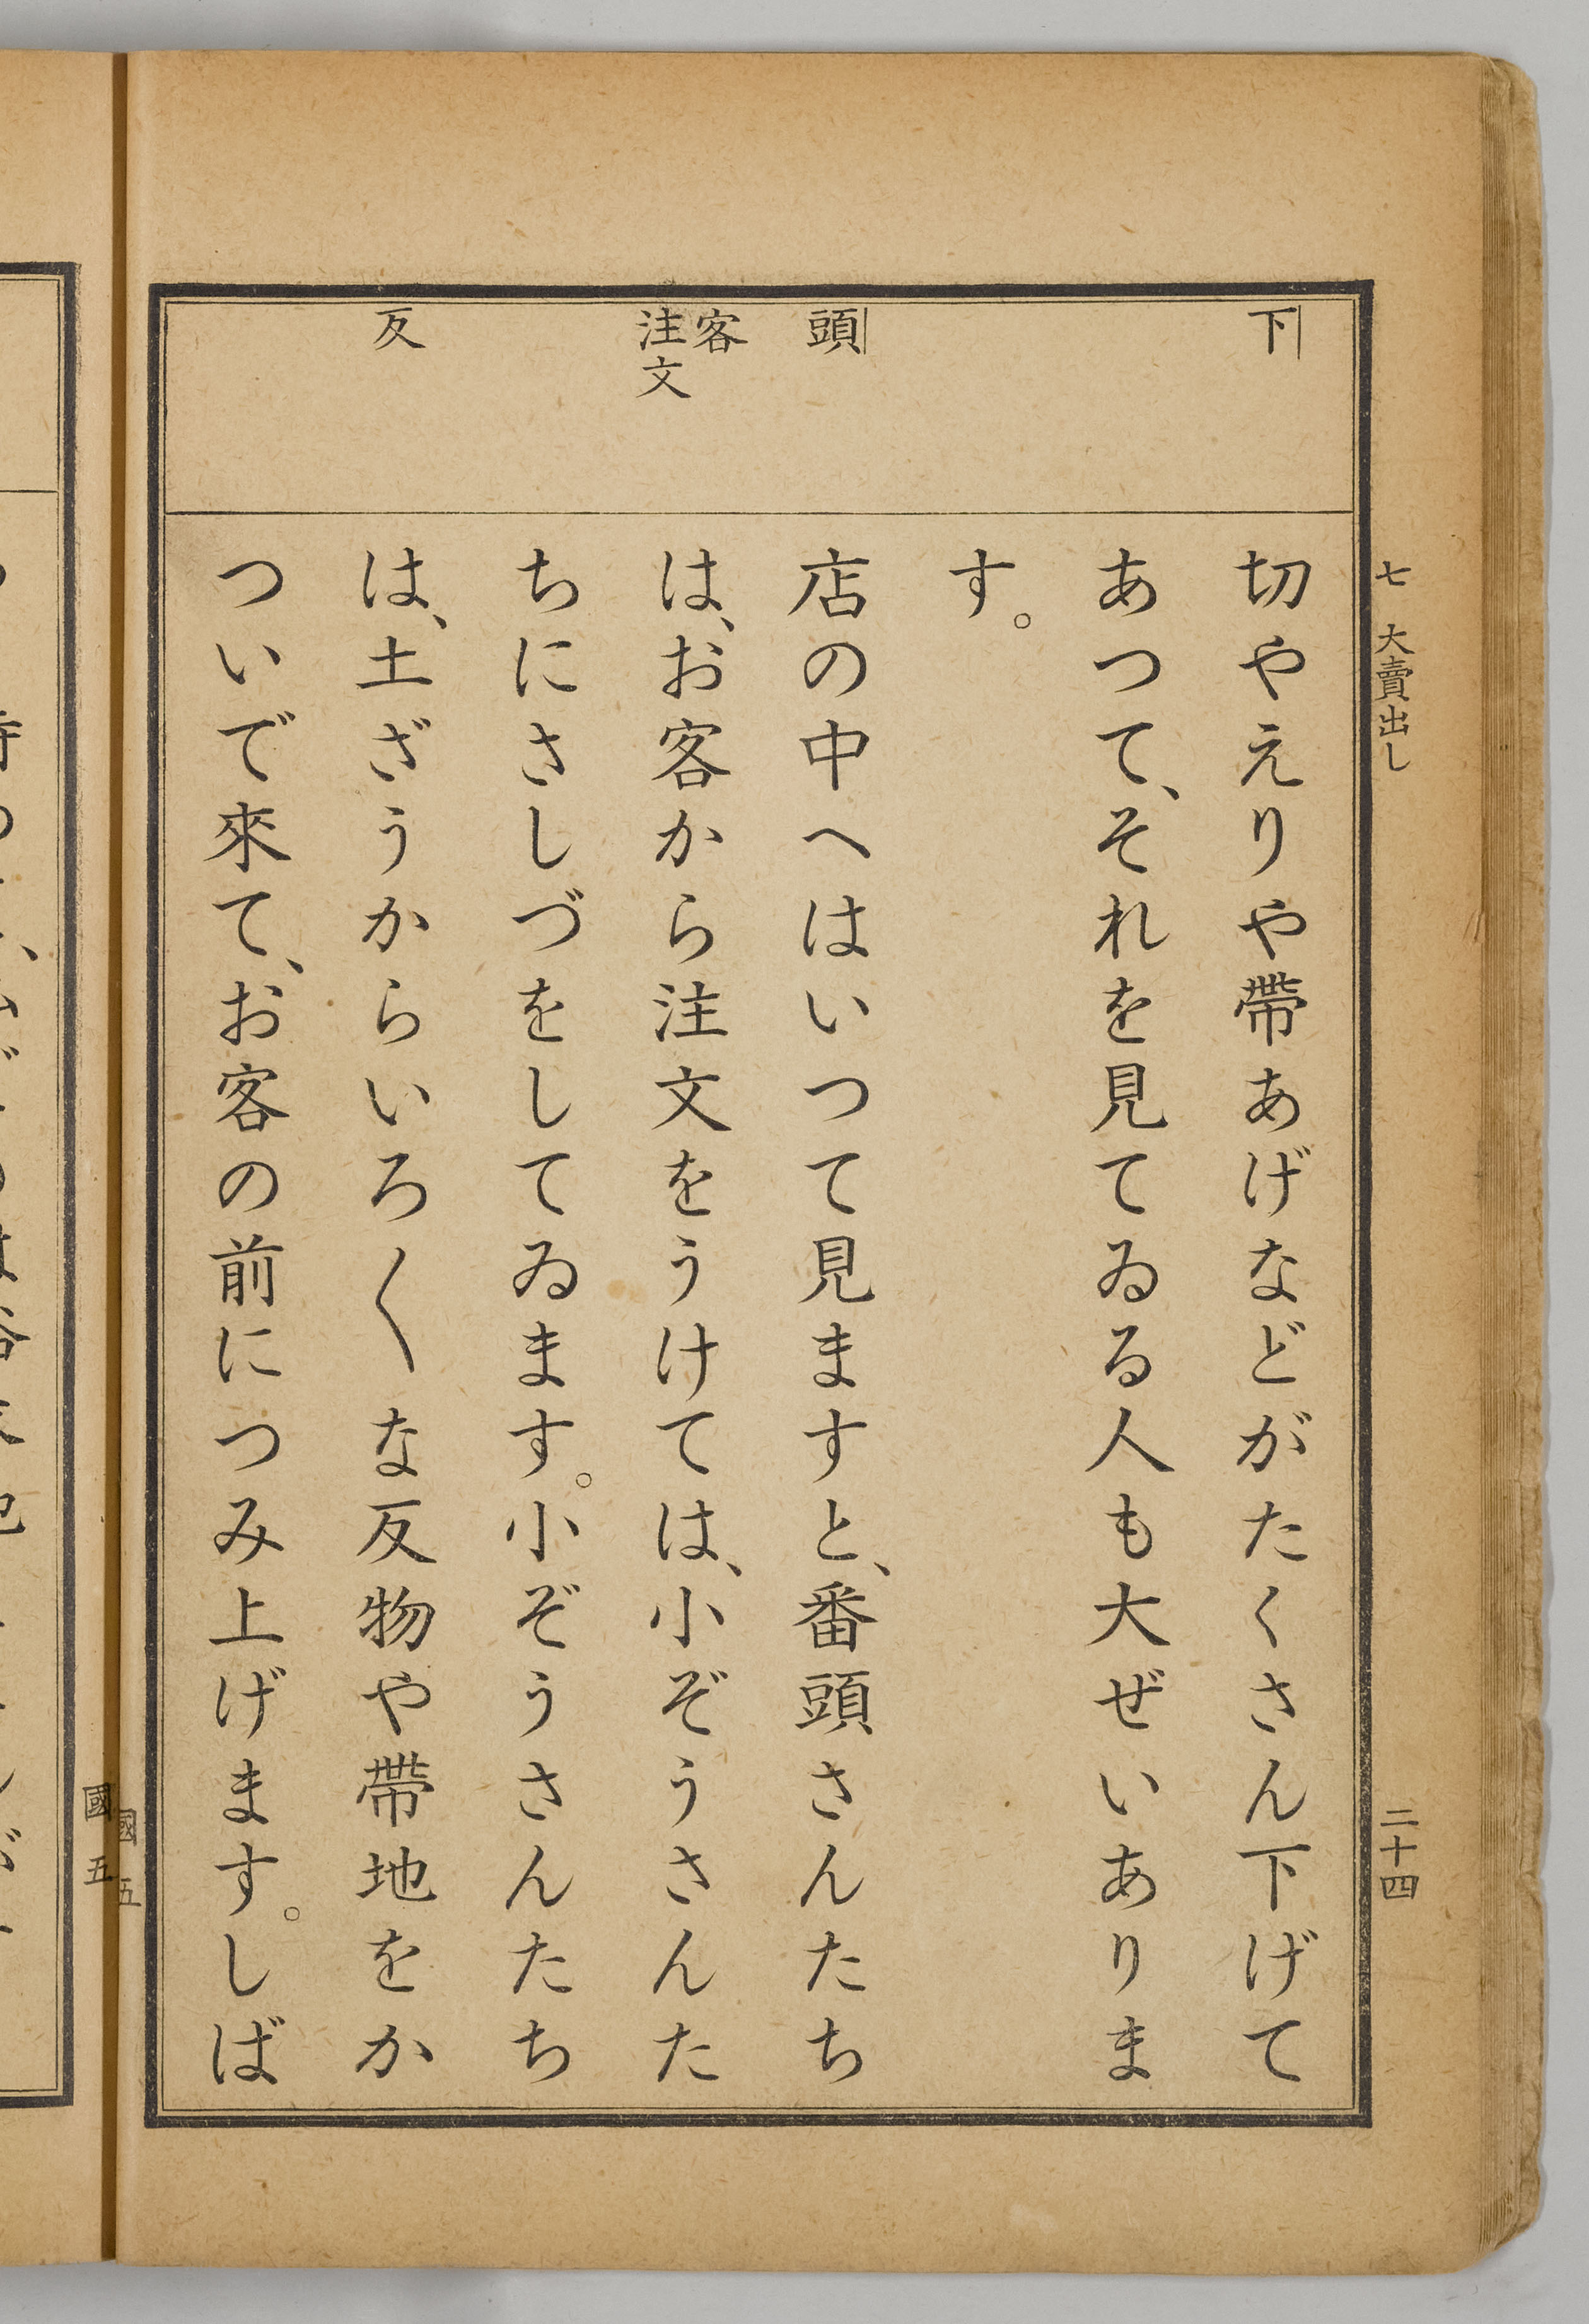 七 大賣出し 二十四
下
頭
客
注文
反
切やえりや帶あげなどがたくさん下げて
あつて、それを見てゐる人も大ぜいありま
す。
店の中へはいつて見ますと、番頭さんたち
は、お客から注文をうけては、小ぞうさんた
ちにさしづをしてゐます。小ぞうさんたち
は、土ざうからいろ〱な反物や帶地をか
ついで來て、お客の前につみ上げます。しば
國五
國五